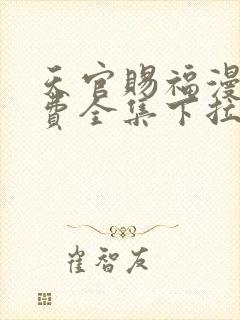 天官赐福漫
费全集下拉
崔智友